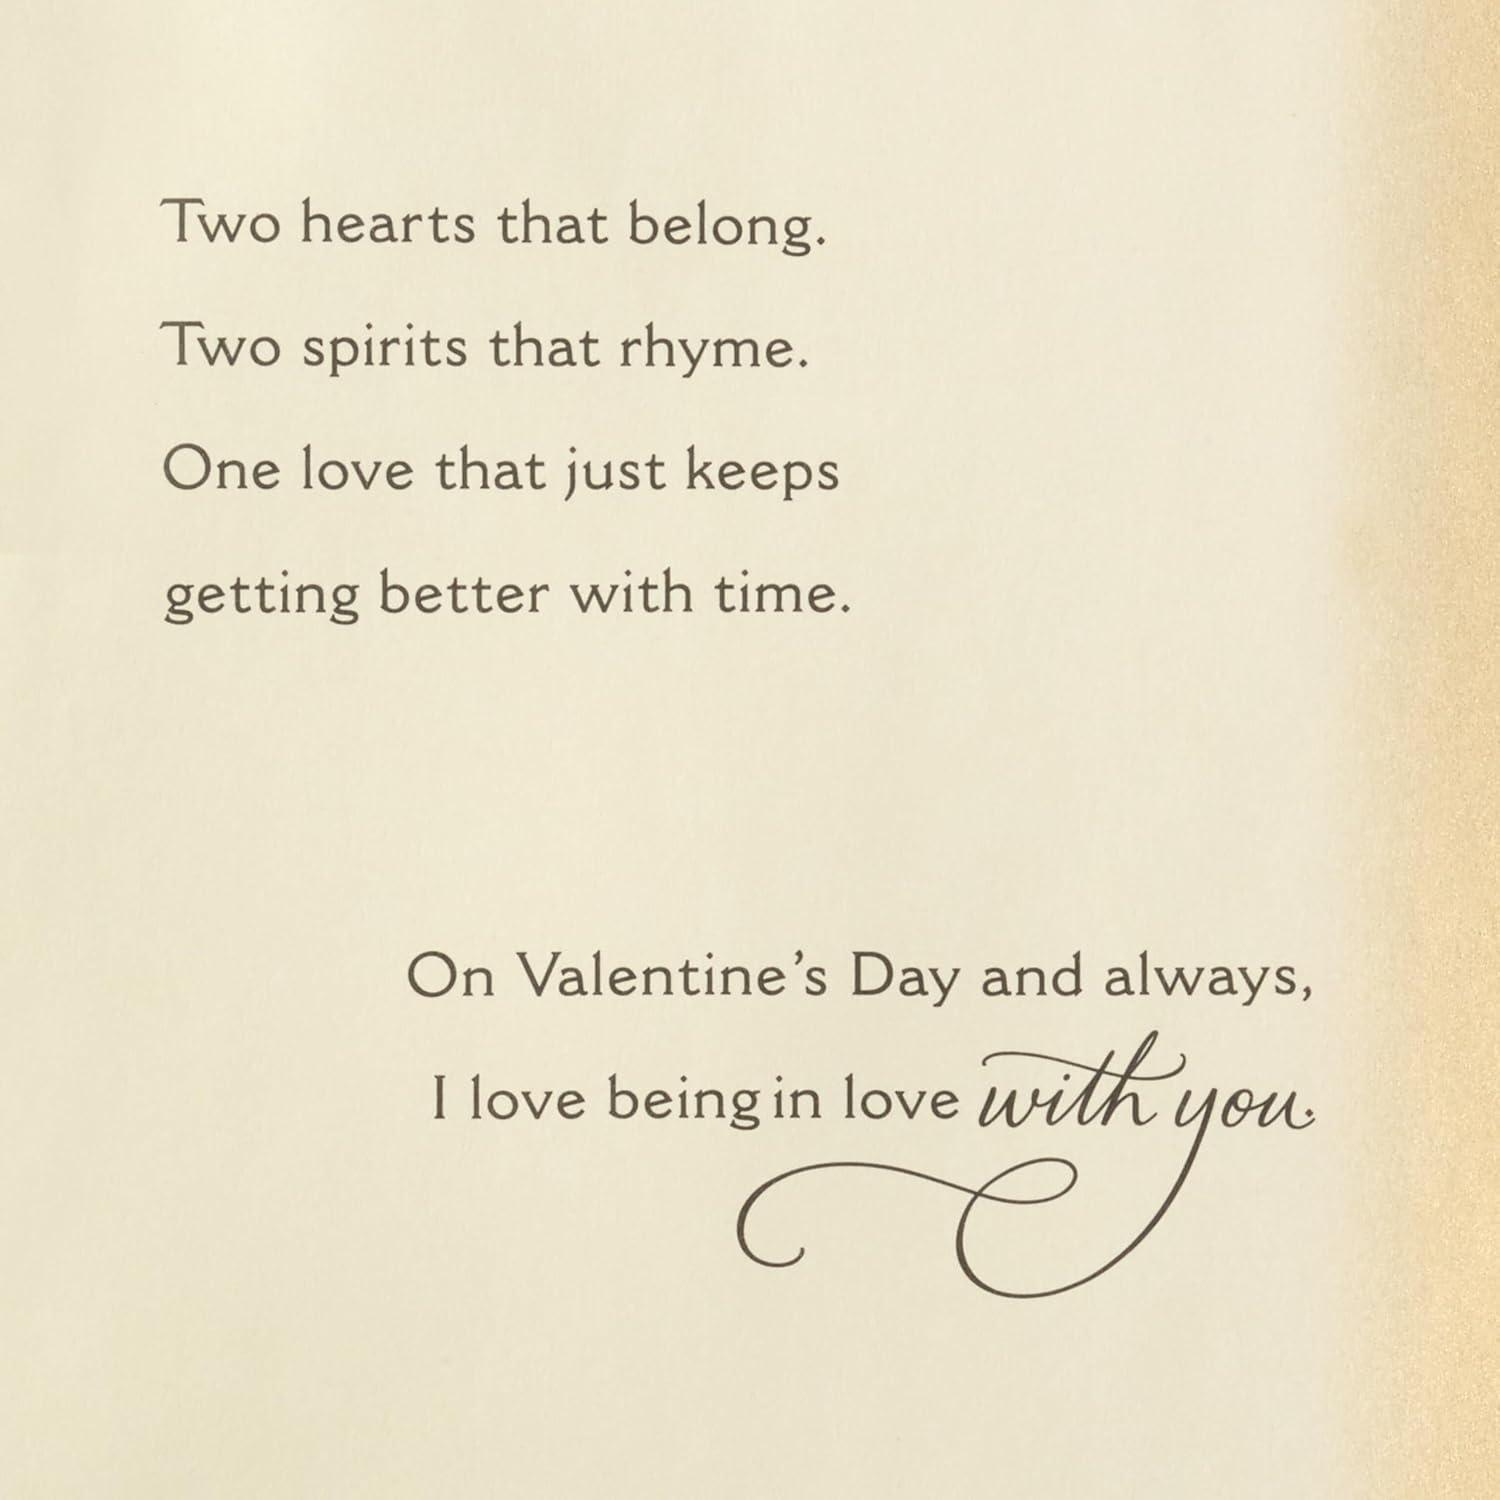 Two hearts that belong.
Two spirits that rhyme.
One love that just keeps
getting better with time.
On Valentine’s Day and always,
I love being in love with you.